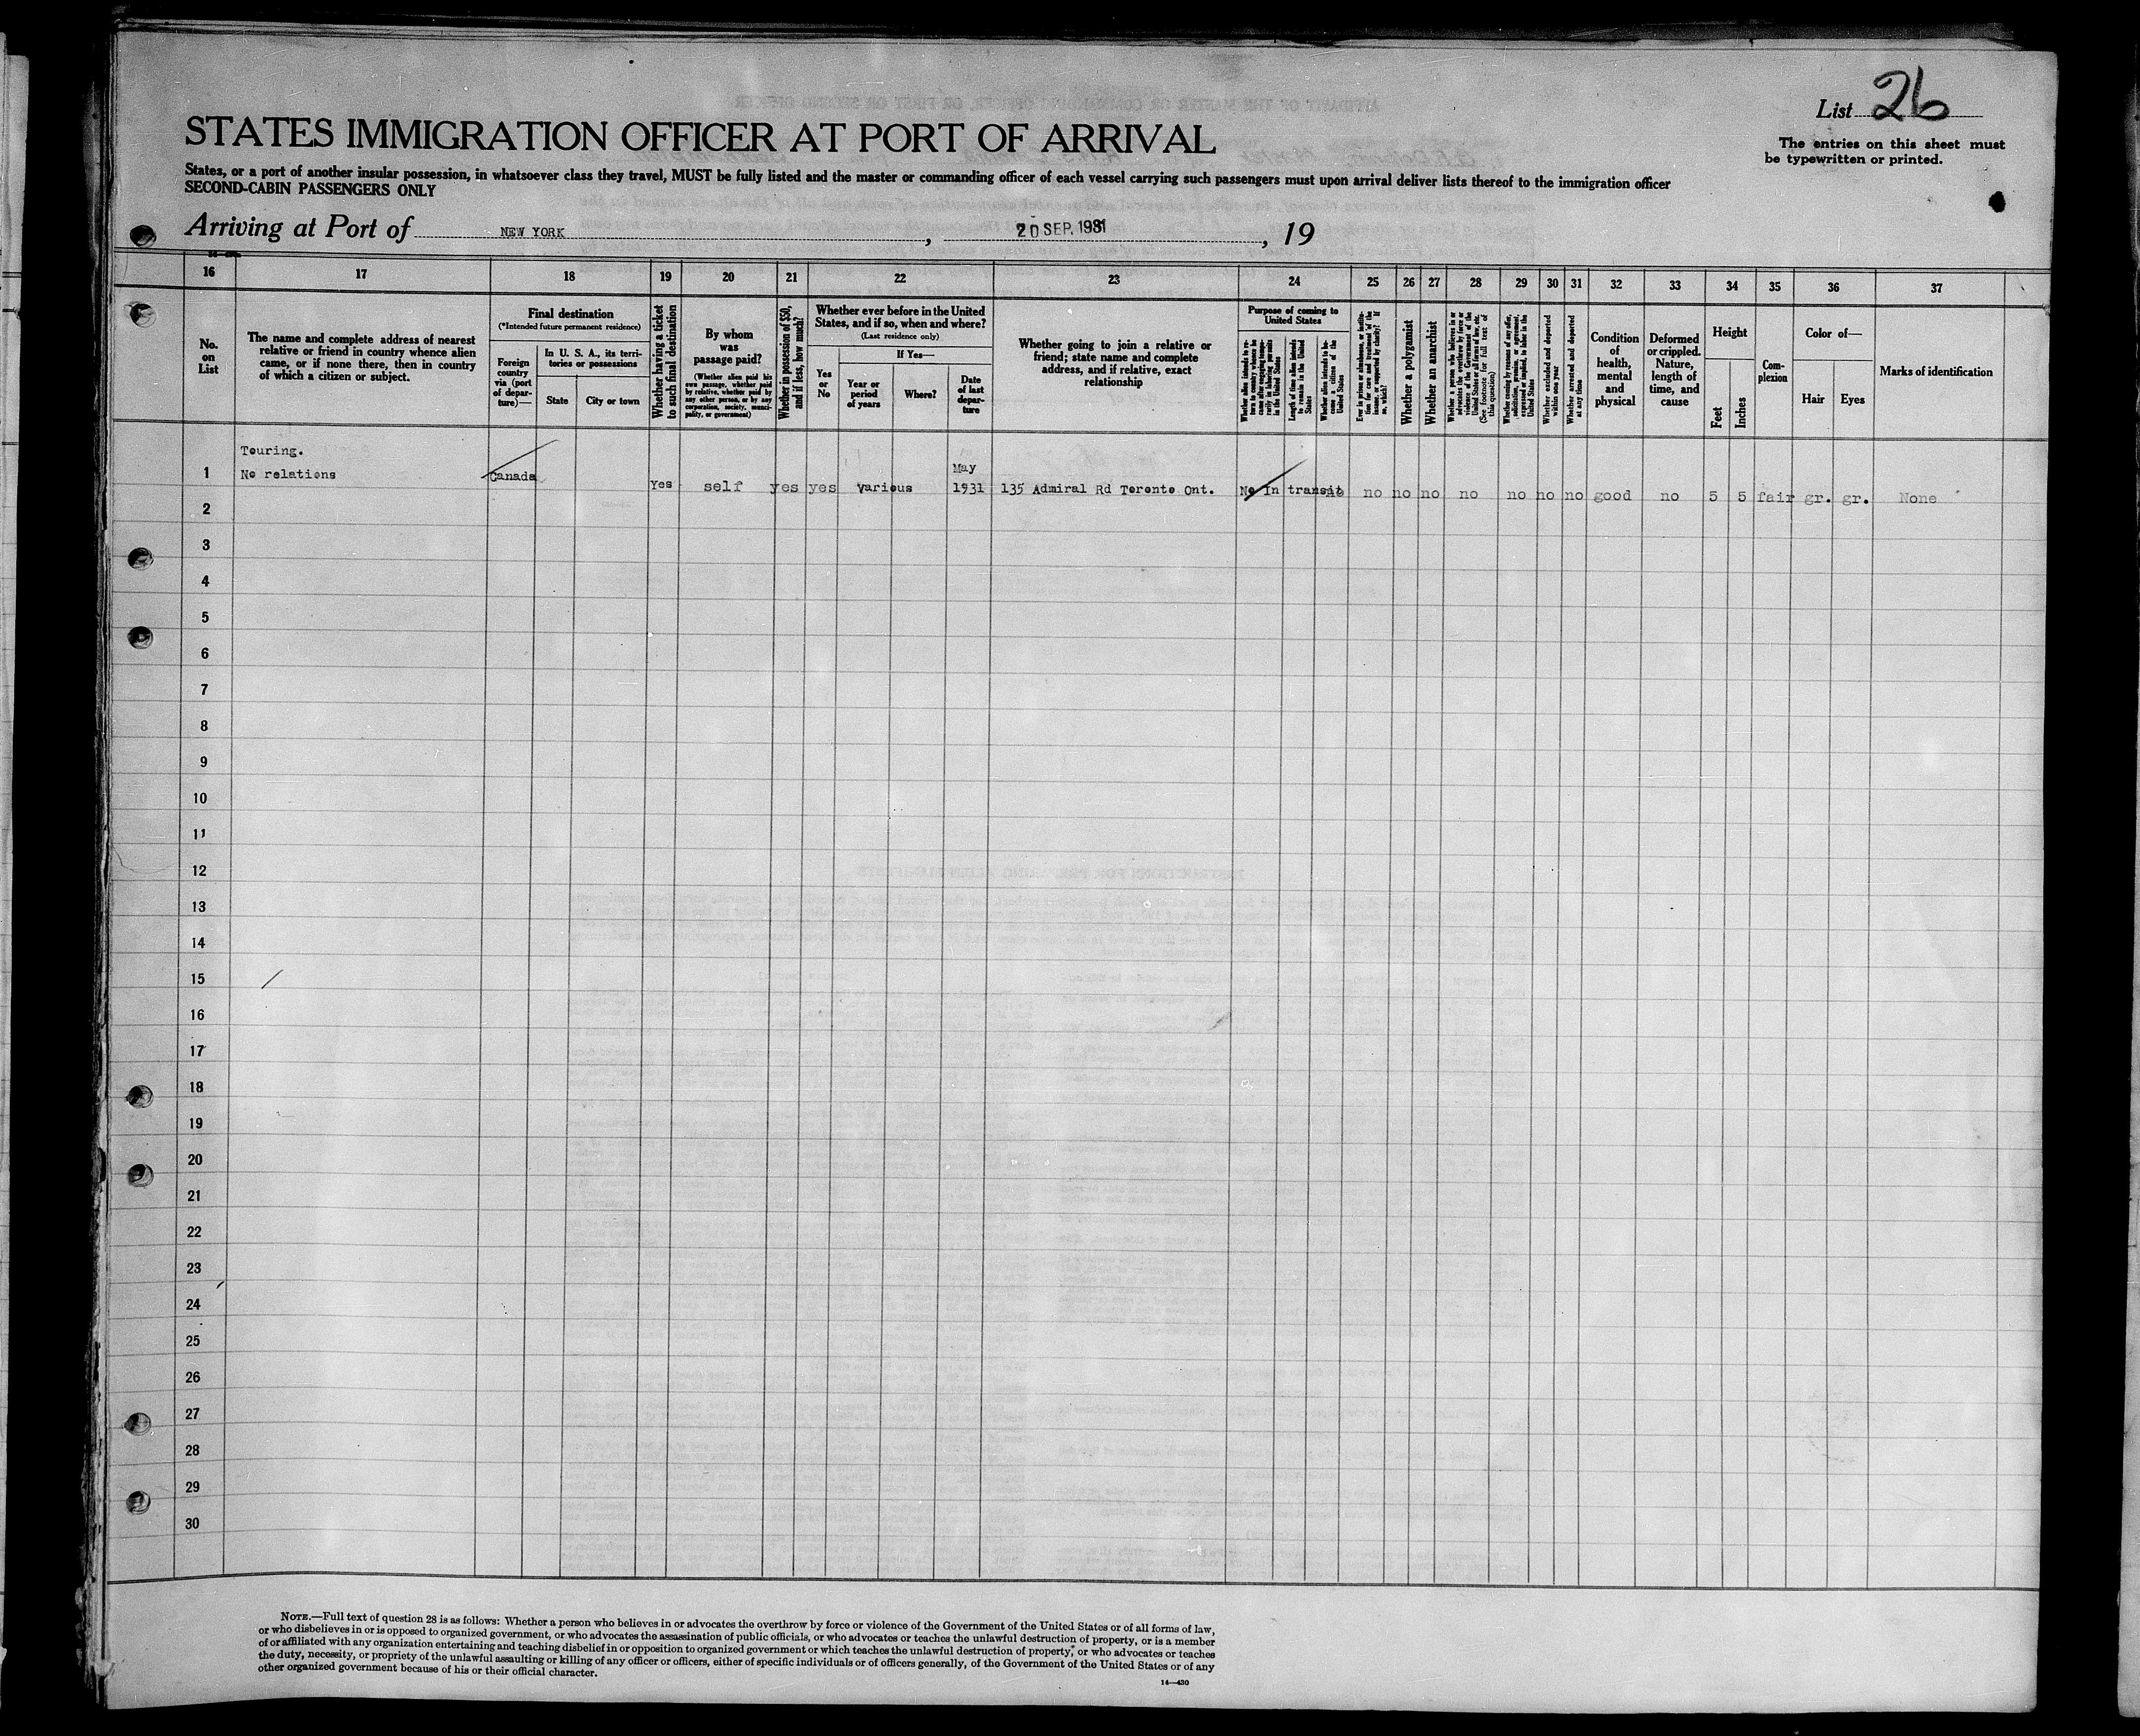 List 26
STATES IMMIGRATION OFFICER AT PORT OF ARRIVAL
The entries on this sheet must
be typewritten or printed.
States, or a port of another insular possession, in whatsoever class they travel, MUST be fully listed and the master or commanding officer of each vessel carrying such passengers must upon arrival deliver lists thereof to the immigration officer
SECOND-CABIN PASSENGERS ONLY
Arriving at Port of NEW YORK, 20 SEP. 1931, 19
16 17 18 19 20 21 22 23 24 25 26 27 28 29 30 31 32 33 34 35 36 37
No.
on
List
The name and complete address of nearest
relative or friend in country whence alien
came, or if none there, then in country
of which a citizen or subject.
Final destination
(*Intended future permanent residence)
Foreign
country
via (port
of depar-
ture)—
In U. S. A., its terri-
tories or possessions
State
City or town
Whether having a ticket
to such final destination
By whom
was
passage paid?
(Whether alien paid his
own passage, whether paid
by relative, whether paid by
any other person, or by any
corporation, society, munici-
pality, or government)
Whether in possession of $50,
and if less, how much?
Whether ever before in the United
States, and if so, when and where?
(Last residence only)
Yes
or
No
If Yes—
Year or
period
of years
Where?
Date
of last
depar-
ture
Whether going to join a relative or
friend; state name and complete
address, and if relative, exact
relationship
Purpose of coming to
United States
Length of time alien intends
to remain in the United
States
Whether alien intends to be-
come a citizen of the
United States
Whether a polygamist
Whether an anarchist
Whether excluded and deported
within one year
Whether arrested and deported
at any time
Condition
of
health,
mental
and
physical
Deformed
or crippled.
Nature,
length of
time, and
cause
Height
Feet
Inches
Com-
plexion
Color of—
Hair
Eyes
Marks of identification
Touring.
1 No relations Canada Yes self yes yes various May 1931 135 Admiral Rd Toronto Ont. No In transit no no no no no no no no good no 5 5 fair gr. gr. None
2
3
4
5
6
7
8
9
10
11
12
13
14
15
16
17
18
19
20
21
22
23
24
25
26
27
28
29
30
NOTE.—Full text of question 28 is as follows: Whether a person who believes in or advocates the overthrow by force or violence of the Government of the United States or of all forms of law,
or who disbelieves in or is opposed to organized government, or who advocates the assassination of public officials, or who advocates or teaches the unlawful destruction of property, or is a member
of or affiliated with any organization entertaining and teaching disbelief in or opposition to organized government or which teaches the unlawful destruction of property, or who advocates or teaches
the duty, necessity, or propriety of the unlawful assaulting or killing of any officer or officers, either of specific individuals or of officers generally, of the Government of the United States or of any
other organized government because of his or their official character.
14—430